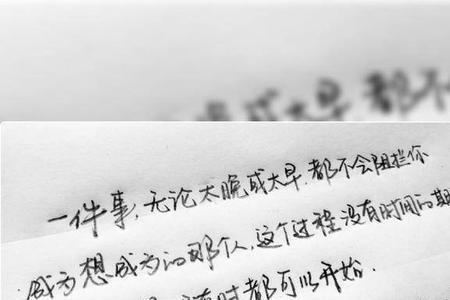 或太早 都不
一件事,无论太晚或太早,都不会阻拦你
成为想成为的那个人,这个过程没有时间的期
时都可以开始.